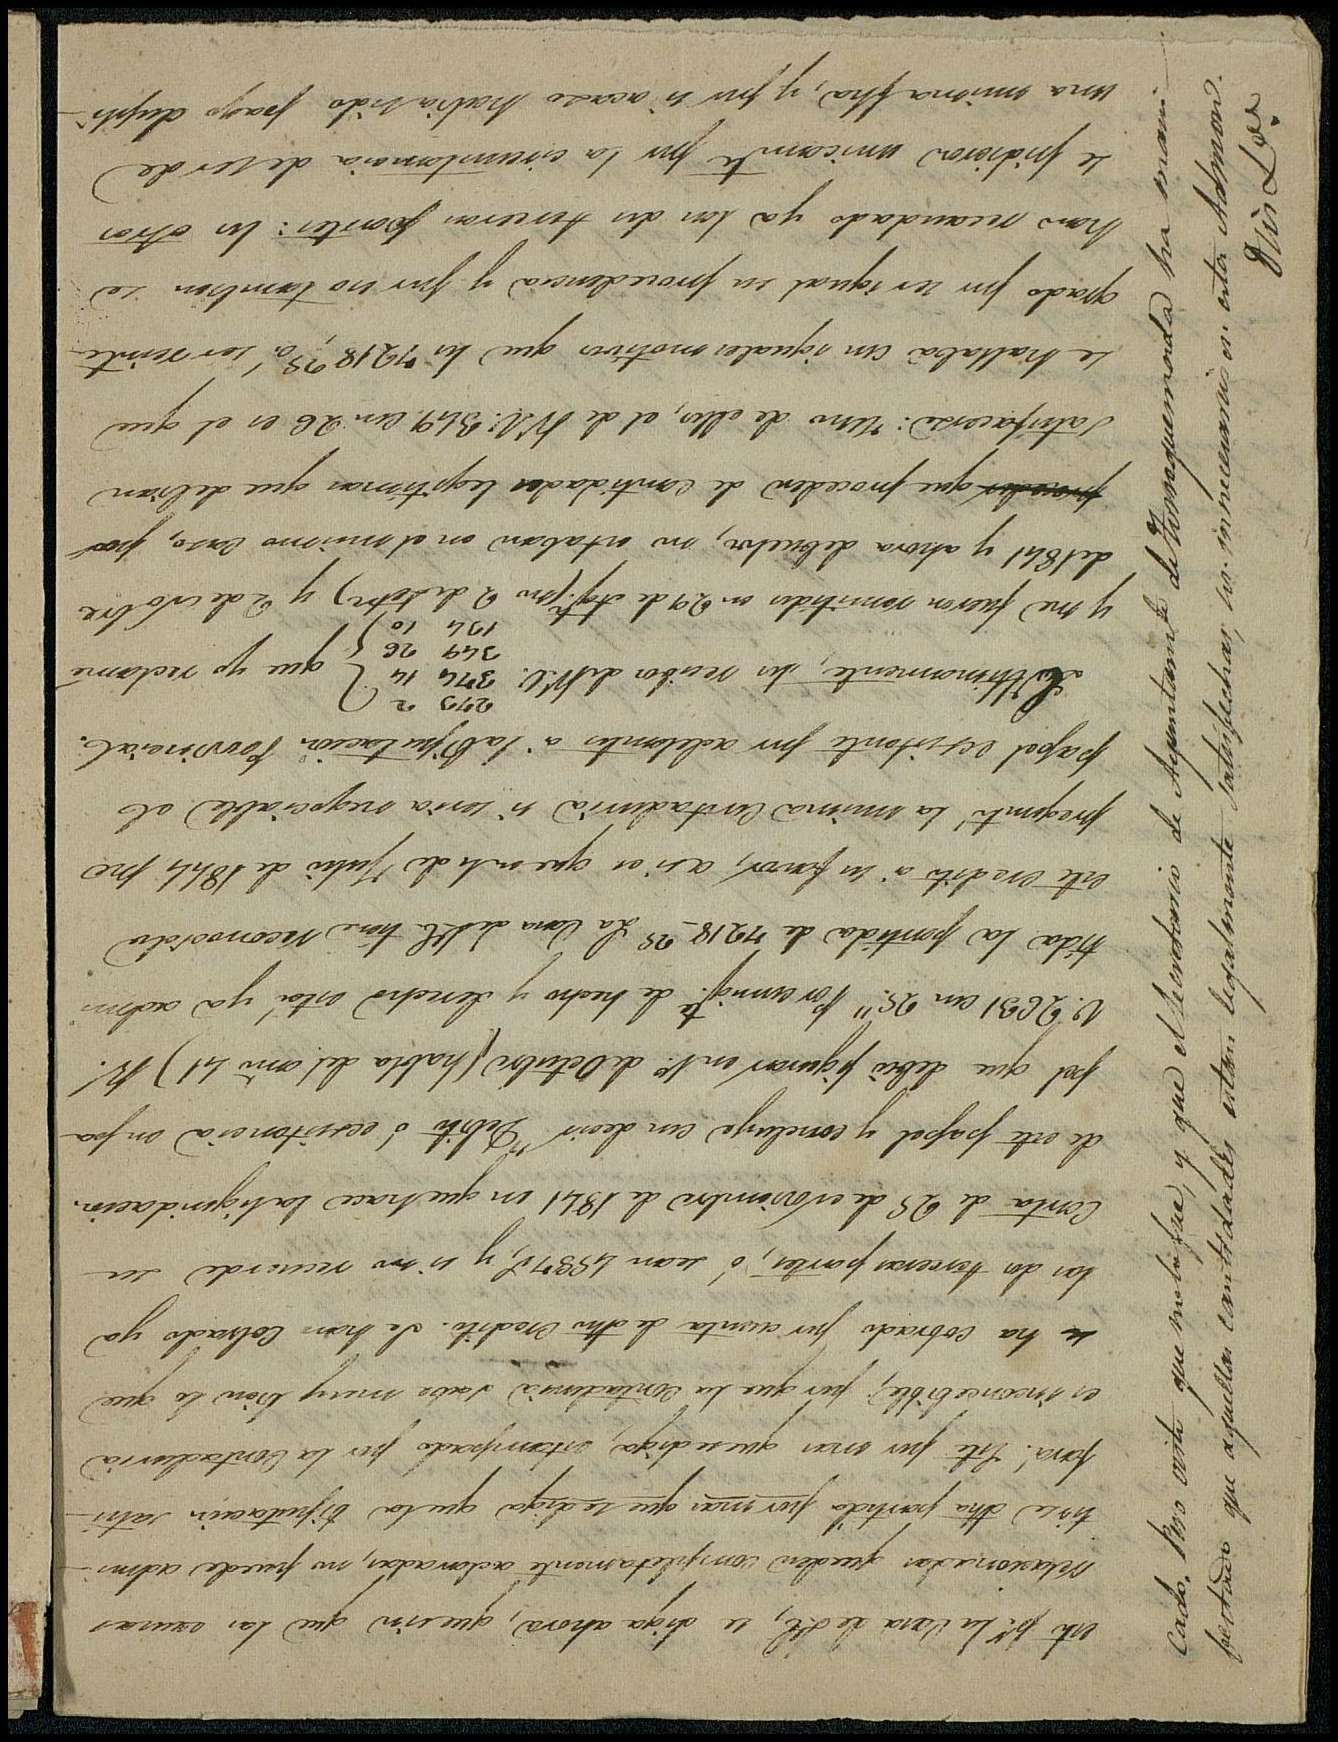 este pr. la Casa de H, se diga ahora, que sin que las causas
relacionadas queden completamente aclaradas, no puede admi-
tirse dha partida por mas que se diga que la Diputacion satis-
fará. Este por mas que se diga, estampado por la Contaduria
es inconcebible, por que la Contaduria sabe muy bien lo que
se ha cobrado por cuenta de dho credito. Se han cobrado ya
las dos terceras partes, ó sean 4587 y si no recuerde su
Carta de 25 de Noviembre de 1841 en que hace la liquidacion
de este papel y concluye con decir "Debito ó existencia en pa-
pel que debió figurar en 1º de Octubre (habla del año 41) R.
V. 2631 con 25." Por consigte de hecho y derecho está ya admi-
tida la partida de 7218..25 La Casa de H. tiene reconocido
este credito á su favor, asi es que en 4 de Julio de 1844 me
preguntó la misma Contaduria si seria negociable el
papel existente por adelantos á la Diputacion Provincial.
Ultimamente, los recibos de V.
273 2
374 14
349 26
194 10
que yo reclamé
y me fueron remitidos en 29 de Agto. (no 2 de Setre) y 2 de Octubre
de 1841 y ahora debuelvo, no estaban en el mismo caso, por
que proceden de Cantidades legitimas que debian
satisfacerse: Uno de ellos, el de R V. 349 con 26 es el que
se hallaba con iguales motivos que los 7218 25, á ser reinte-
grado por ser igual su procedencia y por eso tambien se
han recaudado ya las dos terceras partes: los otros
se pidieron unicamte por la circunstancia de ser de
una misma fha, y por si acaso habia sido pago dupli-
cado. Pero visto que no lo fue, y que el Secretario de Ayuntamto de Torquemada ha mani-
festado que aquellas cantidades estan legalmente satisfechas, son innecesarios en esta Admon.